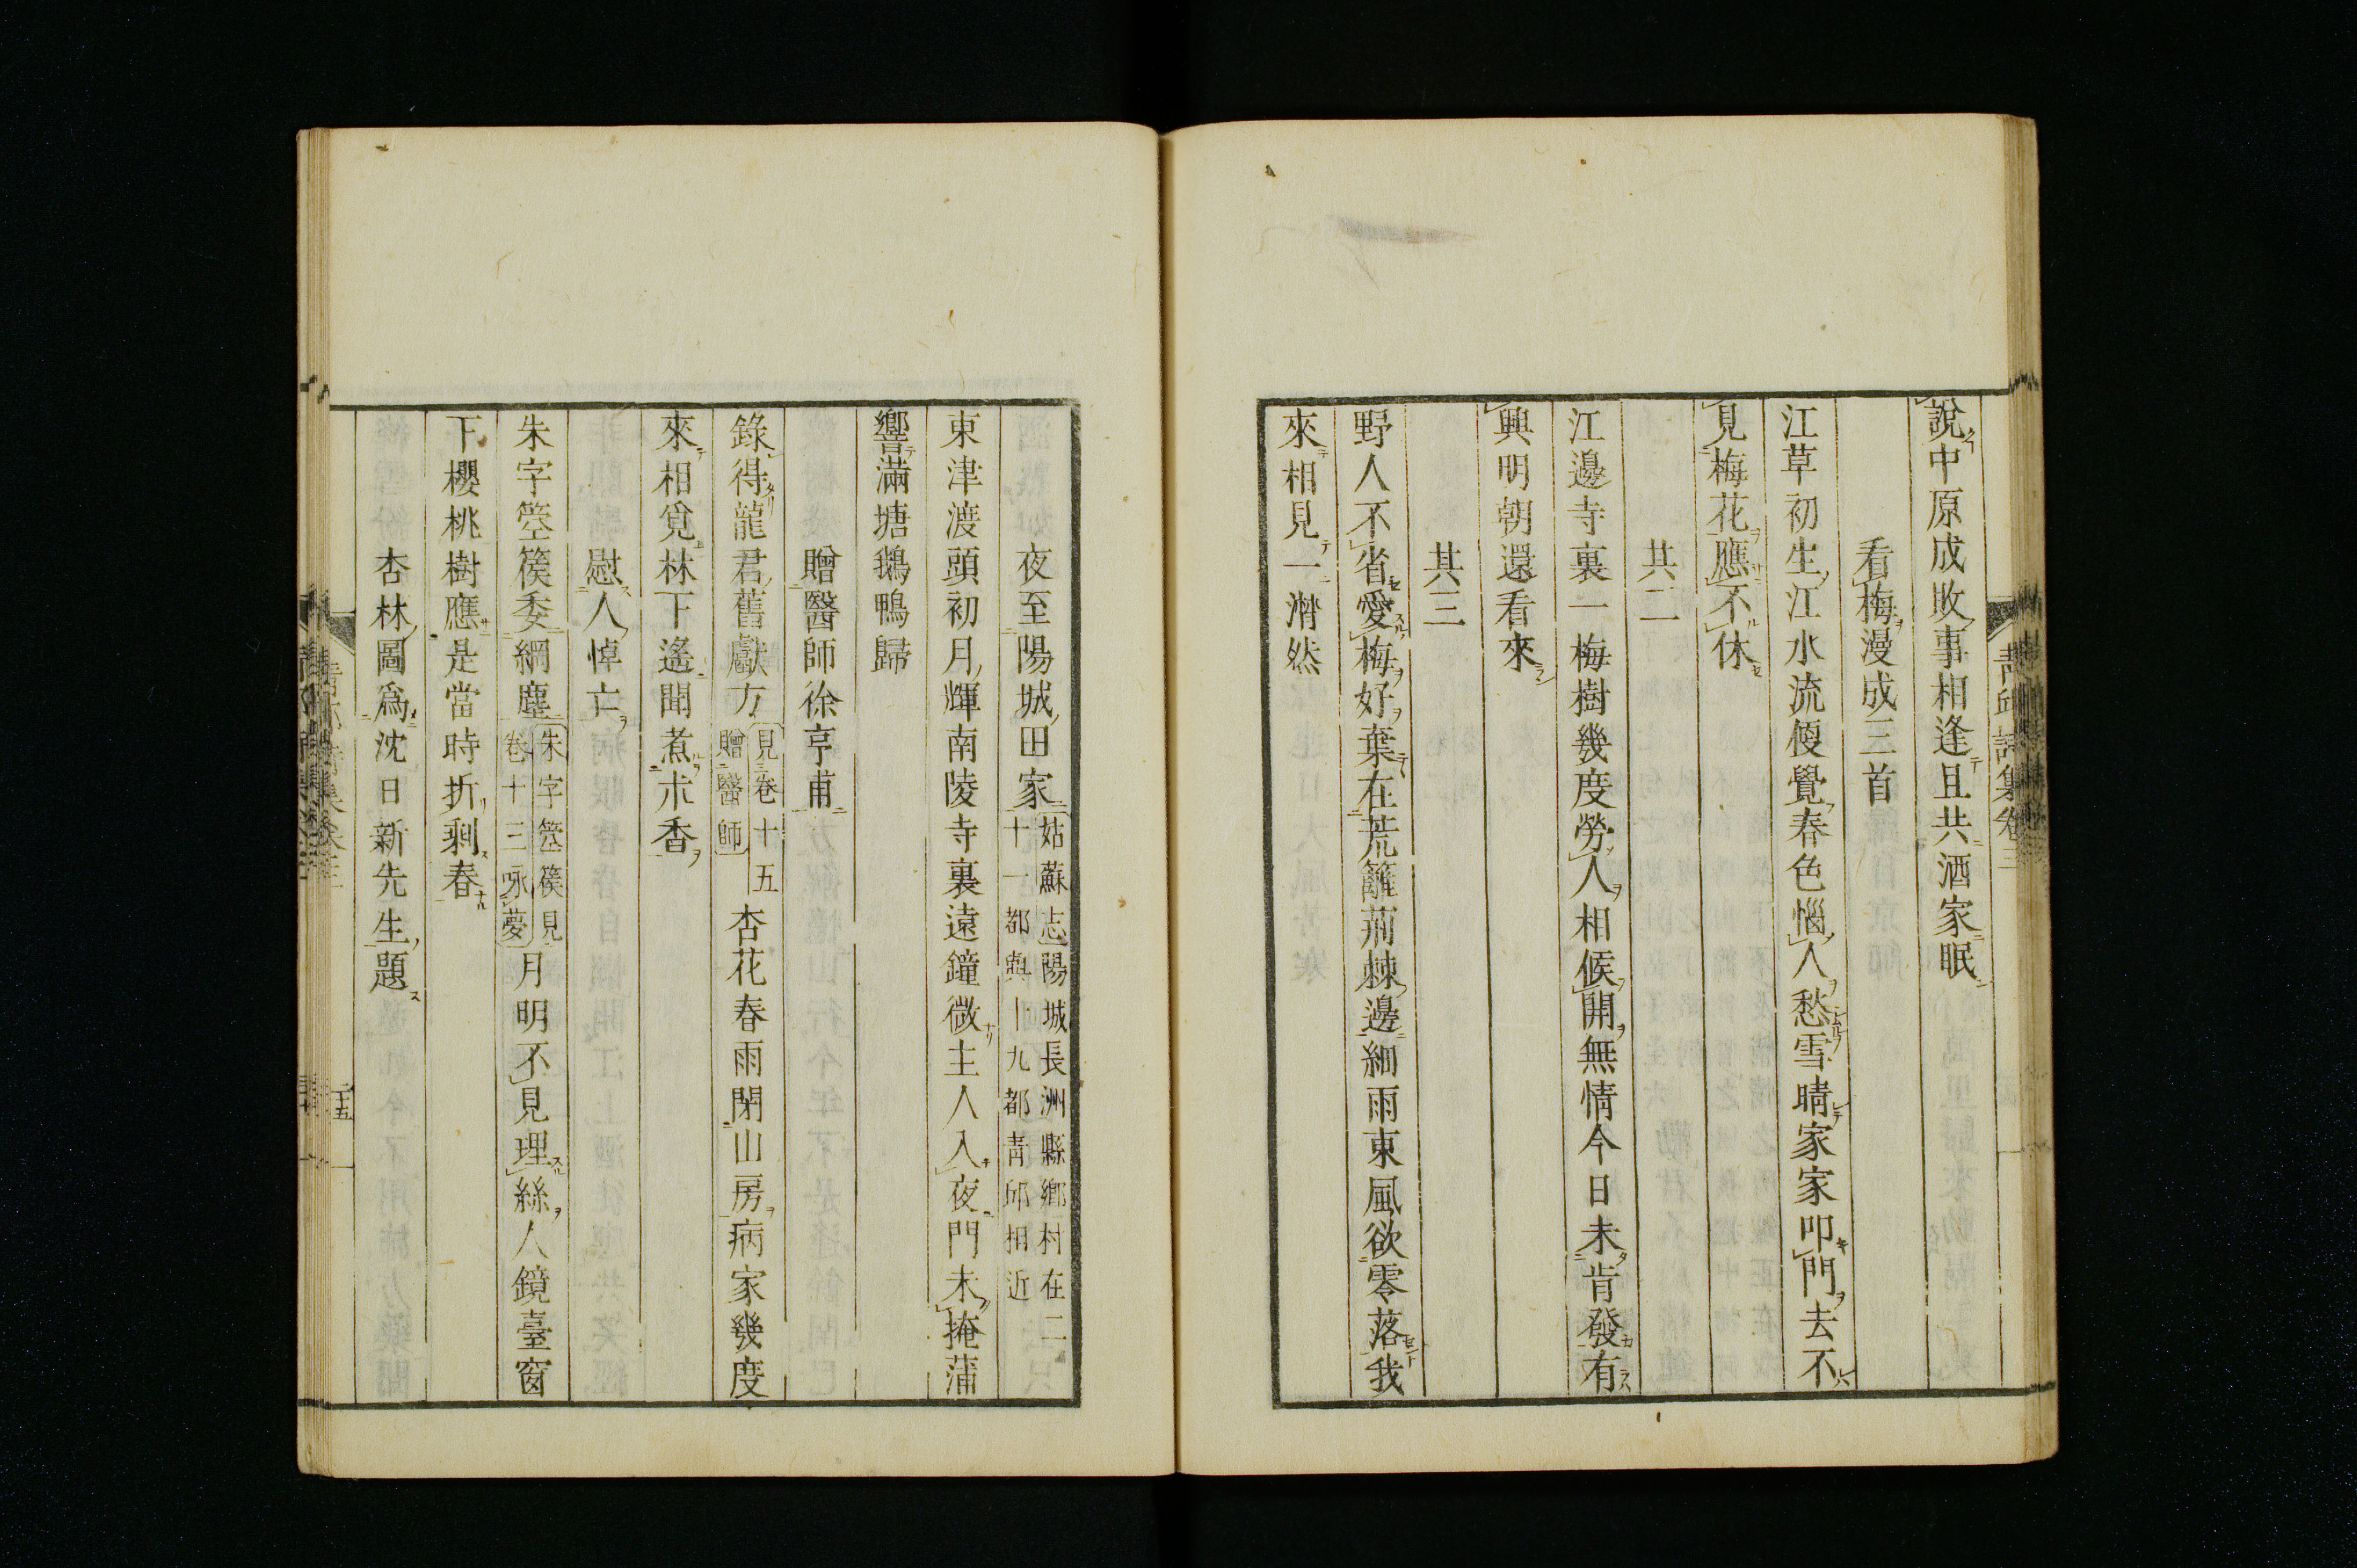 說中原成敗事相逢且共酒家眠
看梅漫成三首
江草初生江水流偠覺春色惱人愁雪晴家家叩門去不
見梅花應不休
其二
江邊寺裏一梅樹幾度勞人相候開無情今日未肯發有
興明朝還看來
其三
野人不省愛梅好葉在荒籬荊棘邊細雨東風欲零落我
來相見一潸然
夜至陽城田家
姑蘇志陽城長洲縣鄉村在二
十一都與十九都靑邱相近
東津渡頭初月輝南陵寺裏遠鐘微主人入夜門未掩蒲
響滿塘鵝鴨歸
贈醫師徐亨甫
錄得龍君舊獻方
見卷十五
贈醫師
杏花春雨閉山房病家幾度
來相覓林下遙聞煮朮香
慰人悼亡
朱字箜篌委網塵
朱字箜篌見
卷十三咏夢
月明不見理絲人鏡臺窗
下櫻桃樹應是當時折剩春
杏林圖爲沈日新先生題